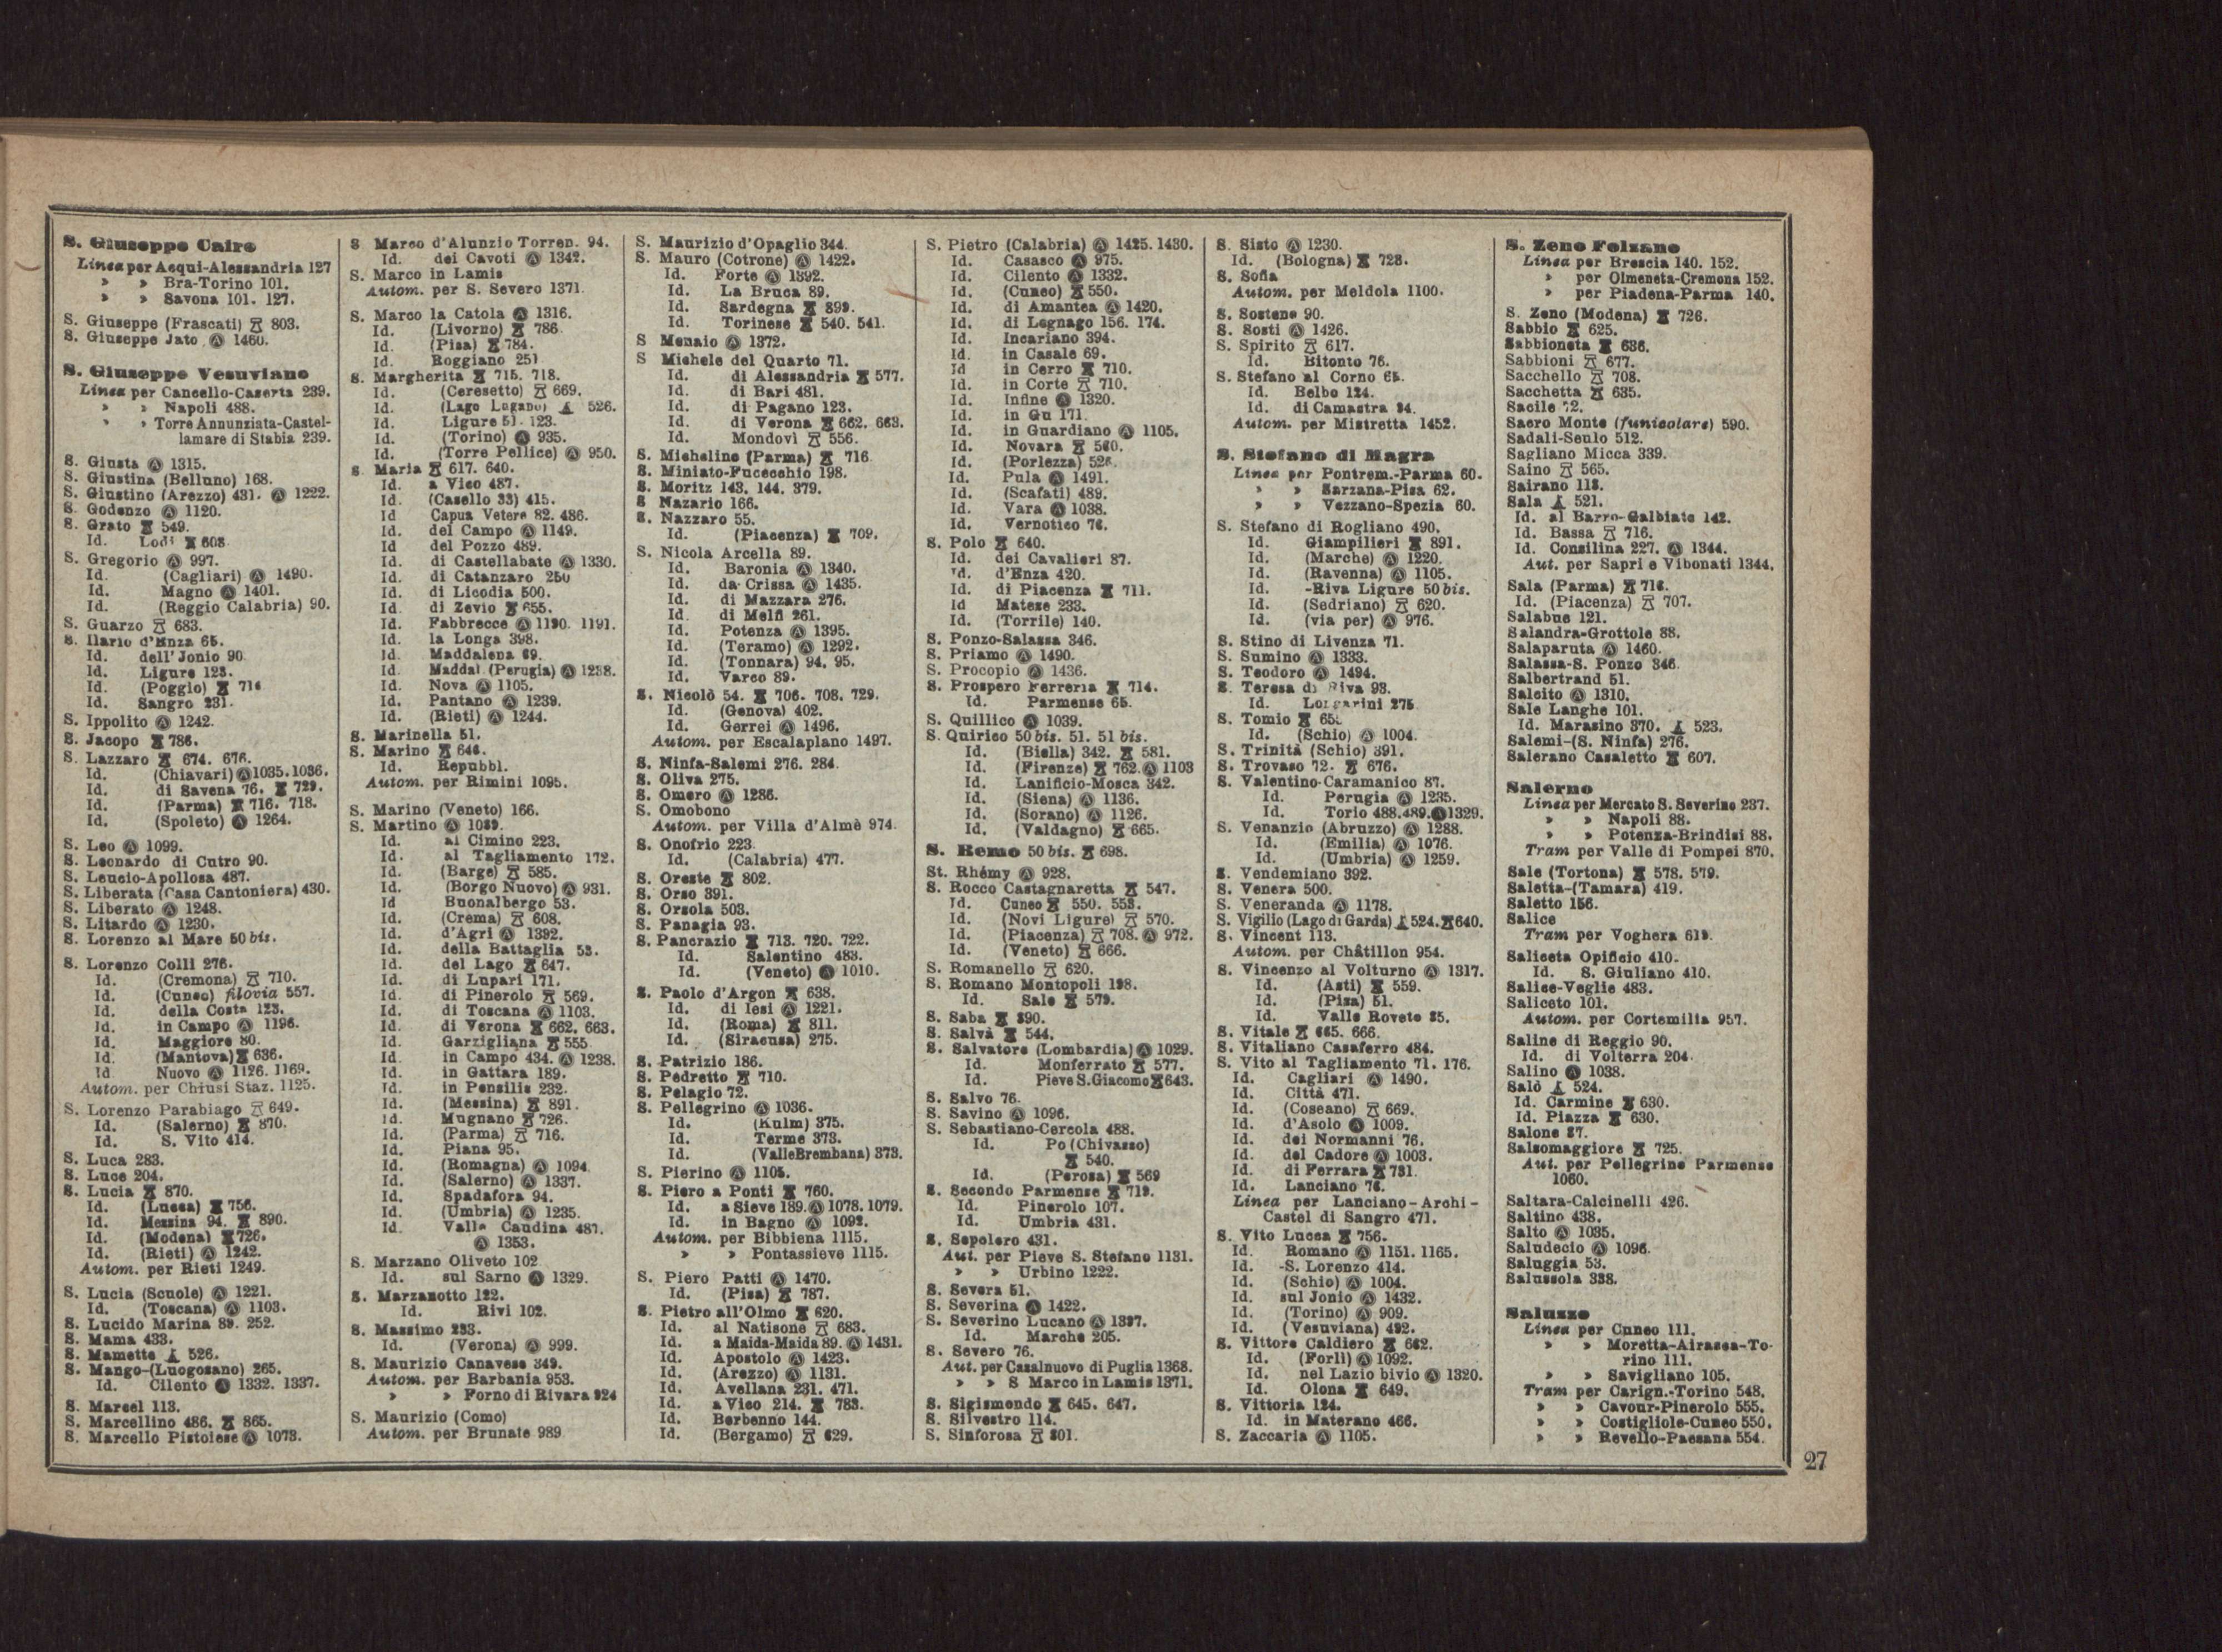 S. Giuseppe Cairo
Linea per Acqui-Alessandria 127
» » Bra-Torino 101.
» » Savona 101. 127.
S. Giuseppe (Frascati) 803.
S. Giuseppe Jato Ⓐ 1460.
S. Giuseppe Vesuviano
Linea per Cancello-Caserta 239.
» » Napoli 488.
» » Torre Annunziata-Castel-
lamare di Stabia 239.
S. Giusta Ⓐ 1315.
S. Giustina (Belluno) 168.
S. Giustino (Arezzo) 431. Ⓐ 1222.
S. Godenzo Ⓐ 1120.
S. Grato 549.
Id. Lodi 608
S. Gregorio Ⓐ 997.
Id. (Cagliari) Ⓐ 1490.
Id. Magno Ⓐ 1401.
Id. (Reggio Calabria) 90.
S. Guarzo 683.
S. Ilario d'Enza 65.
Id. dell'Jonio 90
Id. Ligure 123.
Id. (Poggio) 714
Id. Sangro 231.
S. Ippolito Ⓐ 1242.
S. Jacopo 786.
S. Lazzaro 674. 676.
Id. (Chiavari) Ⓐ 1035. 1036.
Id. di Savena 76. 729.
Id. (Parma) 716. 718.
Id. (Spoleto) Ⓐ 1264.
S. Leo Ⓐ 1099.
S. Leonardo di Cutro 90.
S. Leucio-Apollosa 487.
S. Liberata (Casa Cantoniera) 430.
S. Liberato Ⓐ 1248.
S. Litardo Ⓐ 1230.
S. Lorenzo al Mare 50 bis.
S. Lorenzo Colli 276.
Id. (Cremona) 710.
Id. (Cuneo) filovia 557.
Id. della Costa 123.
Id. in Campo Ⓐ 1196.
Id. Maggiore 80.
Id. (Mantova) 636.
Id. Nuovo Ⓐ 1126. 1169.
Autom. per Chiusi Staz. 1125.
S. Lorenzo Parabiago 649.
Id. (Salerno) 870.
Id. S. Vito 414.
S. Luca 283.
S. Luce 204.
S. Lucia 870.
Id. (Lucca) 756.
Id. Messina 94. 890.
Id. (Modena) 726.
Id. (Rieti) Ⓐ 1242.
Autom. per Rieti 1249.
S. Lucia (Scuole) Ⓐ 1221.
Id. (Toscana) Ⓐ 1103.
S. Lucido Marina 89. 252.
S. Mama 433.
S. Mamette 526.
S. Mango-(Luogosano) 265.
Id. Cilento Ⓐ 1332. 1337.
S. Marcel 113.
S. Marcellino 486. 865.
S. Marcello Pistoiese Ⓐ 1073.
S Marco d'Alunzio Torren. 94.
Id. dei Cavoti Ⓐ 1342.
S. Marco in Lamis
Autom. per S. Severo 1371.
S. Marco la Catola Ⓐ 1316.
Id. (Livorno) 786
Id. (Pisa) 784.
Id. Roggiano 251
S. Margherita 715. 718.
Id. (Ceresetto) 669.
Id. (Lago Lugano) 526.
Id. Ligure 51. 123.
Id. (Torino) Ⓐ 935.
Id. (Torre Pellice) Ⓐ 950.
S. Maria 617. 640.
Id. a Vico 487.
Id. (Casello 33) 415.
Id Capua Vetere 82. 486.
Id. del Campo Ⓐ 1149.
Id del Pozzo 489.
Id. di Castellabate Ⓐ 1330.
Id. di Catanzaro 250
Id. di Licodia 500.
Id. di Zevio 655.
Id. Fabbrecce Ⓐ 1190. 1191.
Id. la Longa 398.
Id. Maddalena 69.
Id. Maddal (Perugia) Ⓐ 1238.
Id. Nova Ⓐ 1105.
Id. Pantano Ⓐ 1239.
Id. (Rieti) Ⓐ 1244.
S. Marinella 51.
S. Marino 646.
Id. Repubbl.
Autom. per Rimini 1095.
S. Marino (Veneto) 166.
S. Martino Ⓐ 1089.
Id. al Cimino 223.
Id. al Tagliamento 172.
Id. (Barge) 585.
Id. (Borgo Nuovo) Ⓐ 931.
Id Buonalbergo 53.
Id. (Crema) 608.
Id. d'Agri Ⓐ 1392.
Id. della Battaglia 53.
Id. del Lago 647.
Id. di Lupari 171.
Id. di Pinerolo 569.
Id. di Toscana Ⓐ 1103.
Id. di Verona 662. 663.
Id. Garzigliana 555
Id. in Campo 434. Ⓐ 1238.
Id. in Gattara 189.
Id. in Pensilis 232.
Id. (Messina) 891.
Id. Mugnano 726.
Id. (Parma) 716.
Id. Piana 95.
Id. (Romagna) Ⓐ 1094.
Id. (Salerno) Ⓐ 1337.
Id. Spadafora 94.
Id. (Umbria) Ⓐ 1235.
Id. Valle Caudina 487.
Ⓐ 1353.
S. Marzano Oliveto 102
Id. sul Sarno Ⓐ 1329.
S. Marzanotto 122.
Id. Rivi 102.
S. Massimo 233.
Id. (Verona) Ⓐ 999.
S. Maurizio Canavese 349.
Autom. per Barbania 953.
» » Forno di Rivara 924
S. Maurizio (Como)
Autom. per Brunate 989
S. Maurizio d'Opaglio 344.
S. Mauro (Cotrone) Ⓐ 1422.
Id. Forte Ⓐ 1392.
Id. La Bruca 89.
Id. Sardegna 899.
Id. Torinese 540. 541.
S Menaio Ⓐ 1372.
S Michele del Quarto 71.
Id. di Alessandria 577.
Id. di Bari 481.
Id. di Pagano 123.
Id. di Verona 662. 663.
Id. Mondovì 556.
S. Micheline (Parma) 716
S. Miniato-Fucecchio 198.
S. Moritz 143. 144. 379.
S Nazario 166.
S. Nazzaro 55.
Id. (Piacenza) 709.
S. Nicola Arcella 89.
Id. Baronia Ⓐ 1340.
Id. da Crissa Ⓐ 1435.
Id. di Mazzara 276.
Id. di Melfi 261.
Id. Potenza Ⓐ 1395.
Id. (Teramo) Ⓐ 1292.
Id. (Tonnara) 94. 95.
Id. Varco 89.
S. Nicolò 54. 706. 708. 729.
Id. (Genova) 402.
Id. Gerrei Ⓐ 1496.
Autom. per Escalaplano 1497.
S. Ninfa-Salemi 276. 284
S. Oliva 275.
S. Omero Ⓐ 1286.
S. Omobono
Autom. per Villa d'Almè 974.
S. Onofrio 223
Id. (Calabria) 477.
S. Oreste 802.
S. Orso 391.
S. Orsola 503.
S. Panagia 93.
S. Pancrazio 713. 720. 722.
Id. Salentino 483.
Id. (Veneto) Ⓐ 1010.
S. Paolo d'Argon 638.
Id. di Iesi Ⓐ 1221.
Id. (Roma) 811.
Id. (Siracusa) 275.
S. Patrizio 186.
S. Pedretto 710.
S. Pelagio 72.
S. Pellegrino Ⓐ 1036.
Id. (Kulm) 375.
Id. Terme 373.
Id. (Valle Brembana) 373.
S. Pierino Ⓐ 1105.
S. Piero a Ponti 760.
Id. a Sieve 189. Ⓐ 1078. 1079.
Id. in Bagno Ⓐ 1092.
Autom. per Bibbiena 1115.
» » Pontassieve 1115.
S. Piero Patti Ⓐ 1470.
Id. (Pisa) 787.
S. Pietro all'Olmo 620.
Id. al Natisone 683.
Id. a Maida-Maida 89. Ⓐ 1431.
Id. Apostolo Ⓐ 1423.
Id. (Arezzo) Ⓐ 1131.
Id. Avellana 231. 471.
Id. a Vico 214. 783.
Id. Berbenno 144.
Id. (Bergamo) 629.
S. Pietro (Calabria) Ⓐ 1425. 1430.
Id. Casasco Ⓐ 975.
Id. Cilento Ⓐ 1332.
Id. (Cuneo) 550.
Id. di Amantea Ⓐ 1420.
Id. di Legnago 156. 174.
Id. Incariano 394.
Id. in Casale 69.
Id in Cerro 710.
Id. in Corte 710.
Id. Infine Ⓐ 1320.
Id. in Gu 171.
Id. in Guardiano Ⓐ 1105.
Id. Novara 560.
Id. (Porlezza) 526.
Id. Pula Ⓐ 1491.
Id. (Scafati) 489.
Id. Vara Ⓐ 1038.
Id. Vernotico 76.
S. Polo 640.
Id. dei Cavalieri 87.
Id. d'Enza 420.
Id. di Piacenza 711.
Id Matese 233.
Id. (Torrile) 140.
S. Ponzo-Salassa 346.
S. Priamo Ⓐ 1490.
S. Procopio Ⓐ 1436.
S. Prospero Ferreria 714.
Id. Parmense 65.
S. Quillico Ⓐ 1039.
S. Quirico 50 bis. 51. 51 bis.
Id. (Biella) 342. 581.
Id. (Firenze) 762. Ⓐ 1103
Id. Lanificio-Mosca 342.
Id. (Siena) Ⓐ 1136.
Id. (Sorano) Ⓐ 1126.
Id. (Valdagno) 665.
S. Remo 50 bis. 698.
St. Rhémy Ⓐ 928.
S. Rocco Castagnaretta 547.
Id. Cuneo 550. 553.
Id. (Novi Ligure) 570.
Id. (Piacenza) 708. Ⓐ 972.
Id. (Veneto) 666.
S. Romanello 620.
S. Romano Montopoli 198.
Id. Sale 579.
S. Saba 890.
S. Salvà 544.
S. Salvatore (Lombardia) Ⓐ 1029.
Id. Monferrato 577.
Id. Pieve S. Giacomo 643.
S. Salvo 76.
S. Savino Ⓐ 1096.
S. Sebastiano-Cercola 488.
Id. Po (Chivasso)
540.
Id. (Perosa) 569
S. Secondo Parmense 719.
Id. Pinerolo 107.
Id. Umbria 431.
S. Sepolcro 431.
Aut. per Pieve S. Stefano 1131.
» » Urbino 1222.
S. Severa 51.
S. Severina Ⓐ 1422.
S. Severino Lucano Ⓐ 1397.
Id. Marche 205.
S. Severo 76.
Aut. per Casalnuovo di Puglia 1368.
» » S Marco in Lamis 1371.
S. Sigismondo 645. 647.
S. Silvestro 114.
S. Sinforosa 801.
S. Sisto Ⓐ 1230.
Id. (Bologna) 728.
S. Sofia
Autom. per Meldola 1100.
S. Sostene 90.
S. Sosti Ⓐ 1426.
S. Spirito 617.
Id. Bitonto 76.
S. Stefano al Corno 65.
Id. Belbo 124.
Id. di Camastra 94.
Autom. per Mistretta 1452.
S. Stefano di Magra
Linea per Pontrem.-Parma 60.
» » Sarzana-Pisa 62.
» » Vezzano-Spezia 60.
S. Stefano di Rogliano 490.
Id. Giampilieri 891.
Id. (Marche) Ⓐ 1220.
Id. (Ravenna) Ⓐ 1105.
Id. -Riva Ligure 50 bis.
Id. (Sedriano) 620.
Id. (via per) Ⓐ 976.
S. Stino di Livenza 71.
S. Sumino Ⓐ 1333.
S. Teodoro Ⓐ 1494.
S. Teresa di Riva 93.
Id. Longarini 275
S. Tomio
Id. (Schio) Ⓐ 1004.
S. Trinità (Schio) 391.
S. Trovaso 72. 676.
S. Valentino-Caramanico 87.
Id. Perugia Ⓐ 1235.
Id. Torio 488. 489. Ⓐ 1329.
S. Venanzio (Abruzzo) Ⓐ 1288.
Id. (Emilia) Ⓐ 1076.
Id. (Umbria) Ⓐ 1259.
S. Vendemiano 392.
S. Venera 500.
S. Veneranda Ⓐ 1178.
S. Vigilio (Lago di Garda) 524. 640.
S. Vincent 113.
Autom. per Châtillon 954.
S. Vincenzo al Volturno Ⓐ 1317.
Id. (Asti) 559.
Id. (Pisa) 51.
Id. Valle Roveto 85.
S. Vitale 665. 666.
S. Vitaliano Casaferro 484.
S. Vito al Tagliamento 71. 176.
Id. Cagliari Ⓐ 1490.
Id. Città 471.
Id. (Coseano) 669.
Id. d'Asolo Ⓐ 1009.
Id. dei Normanni 76.
Id. del Cadore Ⓐ 1003.
Id. di Ferrara 731.
Id. Lanciano 76.
Linea per Lanciano-Archi-
Castel di Sangro 471.
S. Vito Lucca 756.
Id. Romano Ⓐ 1151. 1165.
Id. -S. Lorenzo 414.
Id. (Schio) Ⓐ 1004.
Id. sul Jonio Ⓐ 1432.
Id. (Torino) Ⓐ 909.
Id. (Vesuviana) 492.
S. Vittore Caldiero 662.
Id. (Forlì) Ⓐ 1092.
Id. nel Lazio bivio Ⓐ 1320.
Id. Olona 649.
S. Vittoria 124.
Id. in Materano 466.
S. Zaccaria Ⓐ 1105.
S. Zeno Folzano
Linea per Brescia 140. 152.
» per Olmeneta-Cremona 152.
» per Piadena-Parma 140.
S. Zeno (Modena) 726.
Sabbio 625.
Sabbioneta 636.
Sabbioni 677.
Sacchello 708.
Sacchetta 635.
Sacile 72.
Sacro Monte (funicolare) 590.
Sadali-Seulo 512.
Sagliano Micca 339.
Saino 565.
Sairano 118.
Sala 521.
Id. al Barro-Galbiate 142.
Id. Bassa 716.
Id. Consilina 227. Ⓐ 1344.
Aut. per Sapri e Vibonati 1344.
Sala (Parma) 716.
Id. (Piacenza) 707.
Salabue 121.
Salandra-Grottole 88.
Salaparuta Ⓐ 1460.
Salassa-S. Ponzo 346.
Salbertrand 51.
Salcito Ⓐ 1310.
Sale Langhe 101.
Id. Marasino 370. 523.
Salemi-(S. Ninfa) 276.
Salerano Casaletto 607.
Salerno
Linea per Mercato S. Severino 237.
» » Napoli 88.
» » Potenza-Brindisi 88.
Tram per Valle di Pompei 870.
Sale (Tortona) 578. 579.
Saletta-(Tamara) 419.
Saletto 156.
Salice
Tram per Voghera 619.
Saliceta Opificio 410.
Id. S. Giuliano 410.
Salice-Veglie 483.
Saliceto 101.
Autom. per Cortemilia 957.
Saline di Reggio 90.
Id. di Volterra 204
Salino Ⓐ 1038.
Salò 524.
Id. Carmine 630.
Id. Piazza 630.
Salone 87.
Salsomaggiore 725.
Aut. per Pellegrino Parmense
1060.
Saltara-Calcinelli 426.
Saltino 438.
Salto Ⓐ 1035.
Saludecio Ⓐ 1096.
Saluggia 53.
Salussola 338.
Saluzzo
Linea per Cuneo 111.
» » Moretta-Airasca-To-
rino 111.
» » Savigliano 105.
Tram per Carign.-Torino 548.
» » Cavour-Pinerolo 555.
» » Costigliole-Cuneo 550.
» » Revello-Paesana 554.
27